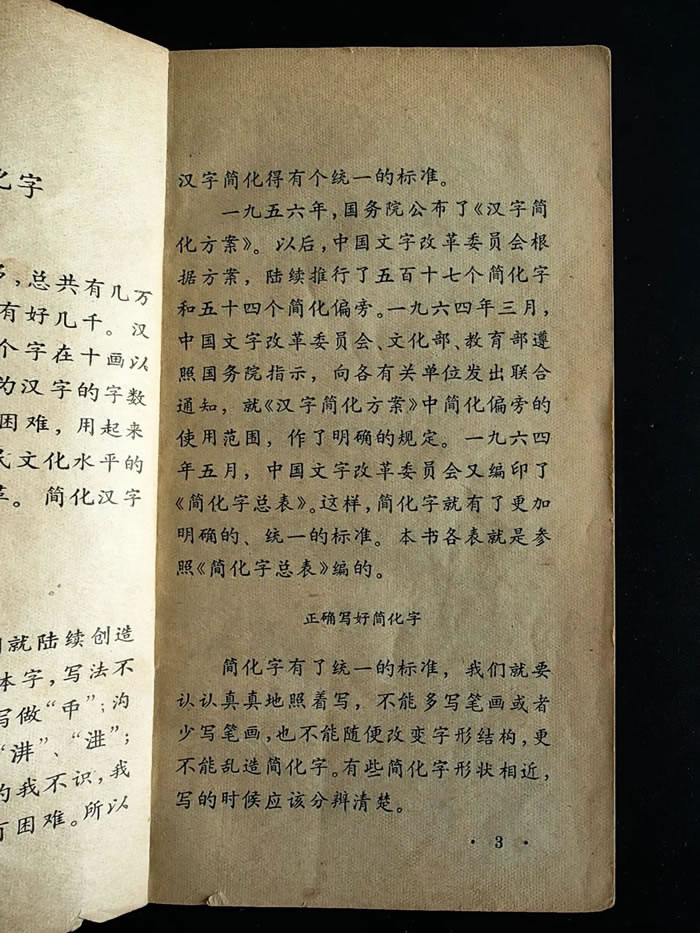 化字
，总共有几万
有好几千。汉
个字在十画以
为汉字的字数
困难，用起来
民文化水平的
革。简化汉字
就陆续创造
本字，写法不
写做“ ”；沟
“ ”、“ ”；
的我不识，我
困难。所以
汉字简化得有个统一的标准。
一九五六年，国务院公布了《汉字简
化方案》。以后，中国文字改革委员会根
据方案，陆续推行了五百十七个简化字
和五十四个简化偏旁。一九六四年三月，
中国文字改革委员会、文化部、教育部遵
照国务院指示，向各有关单位发出联合
通知，就《汉字简化方案》中简化偏旁的
使用范围，作了明确的规定。一九六四
年五月，中国文字改革委员会又编印了
《简化字总表》。这样，简化字就有了更加
明确的、统一的标准。本书各表就是参
照《简化字总表》编的。
正确写好简化字
简化字有了统一的标准，我们就要
认认真真地照着写，不能多写笔画或者
少写笔画，也不能随便改变字形结构，更
不能乱造简化字。有些简化字形状相近，
写的时候应该分辨清楚。
· 3 ·